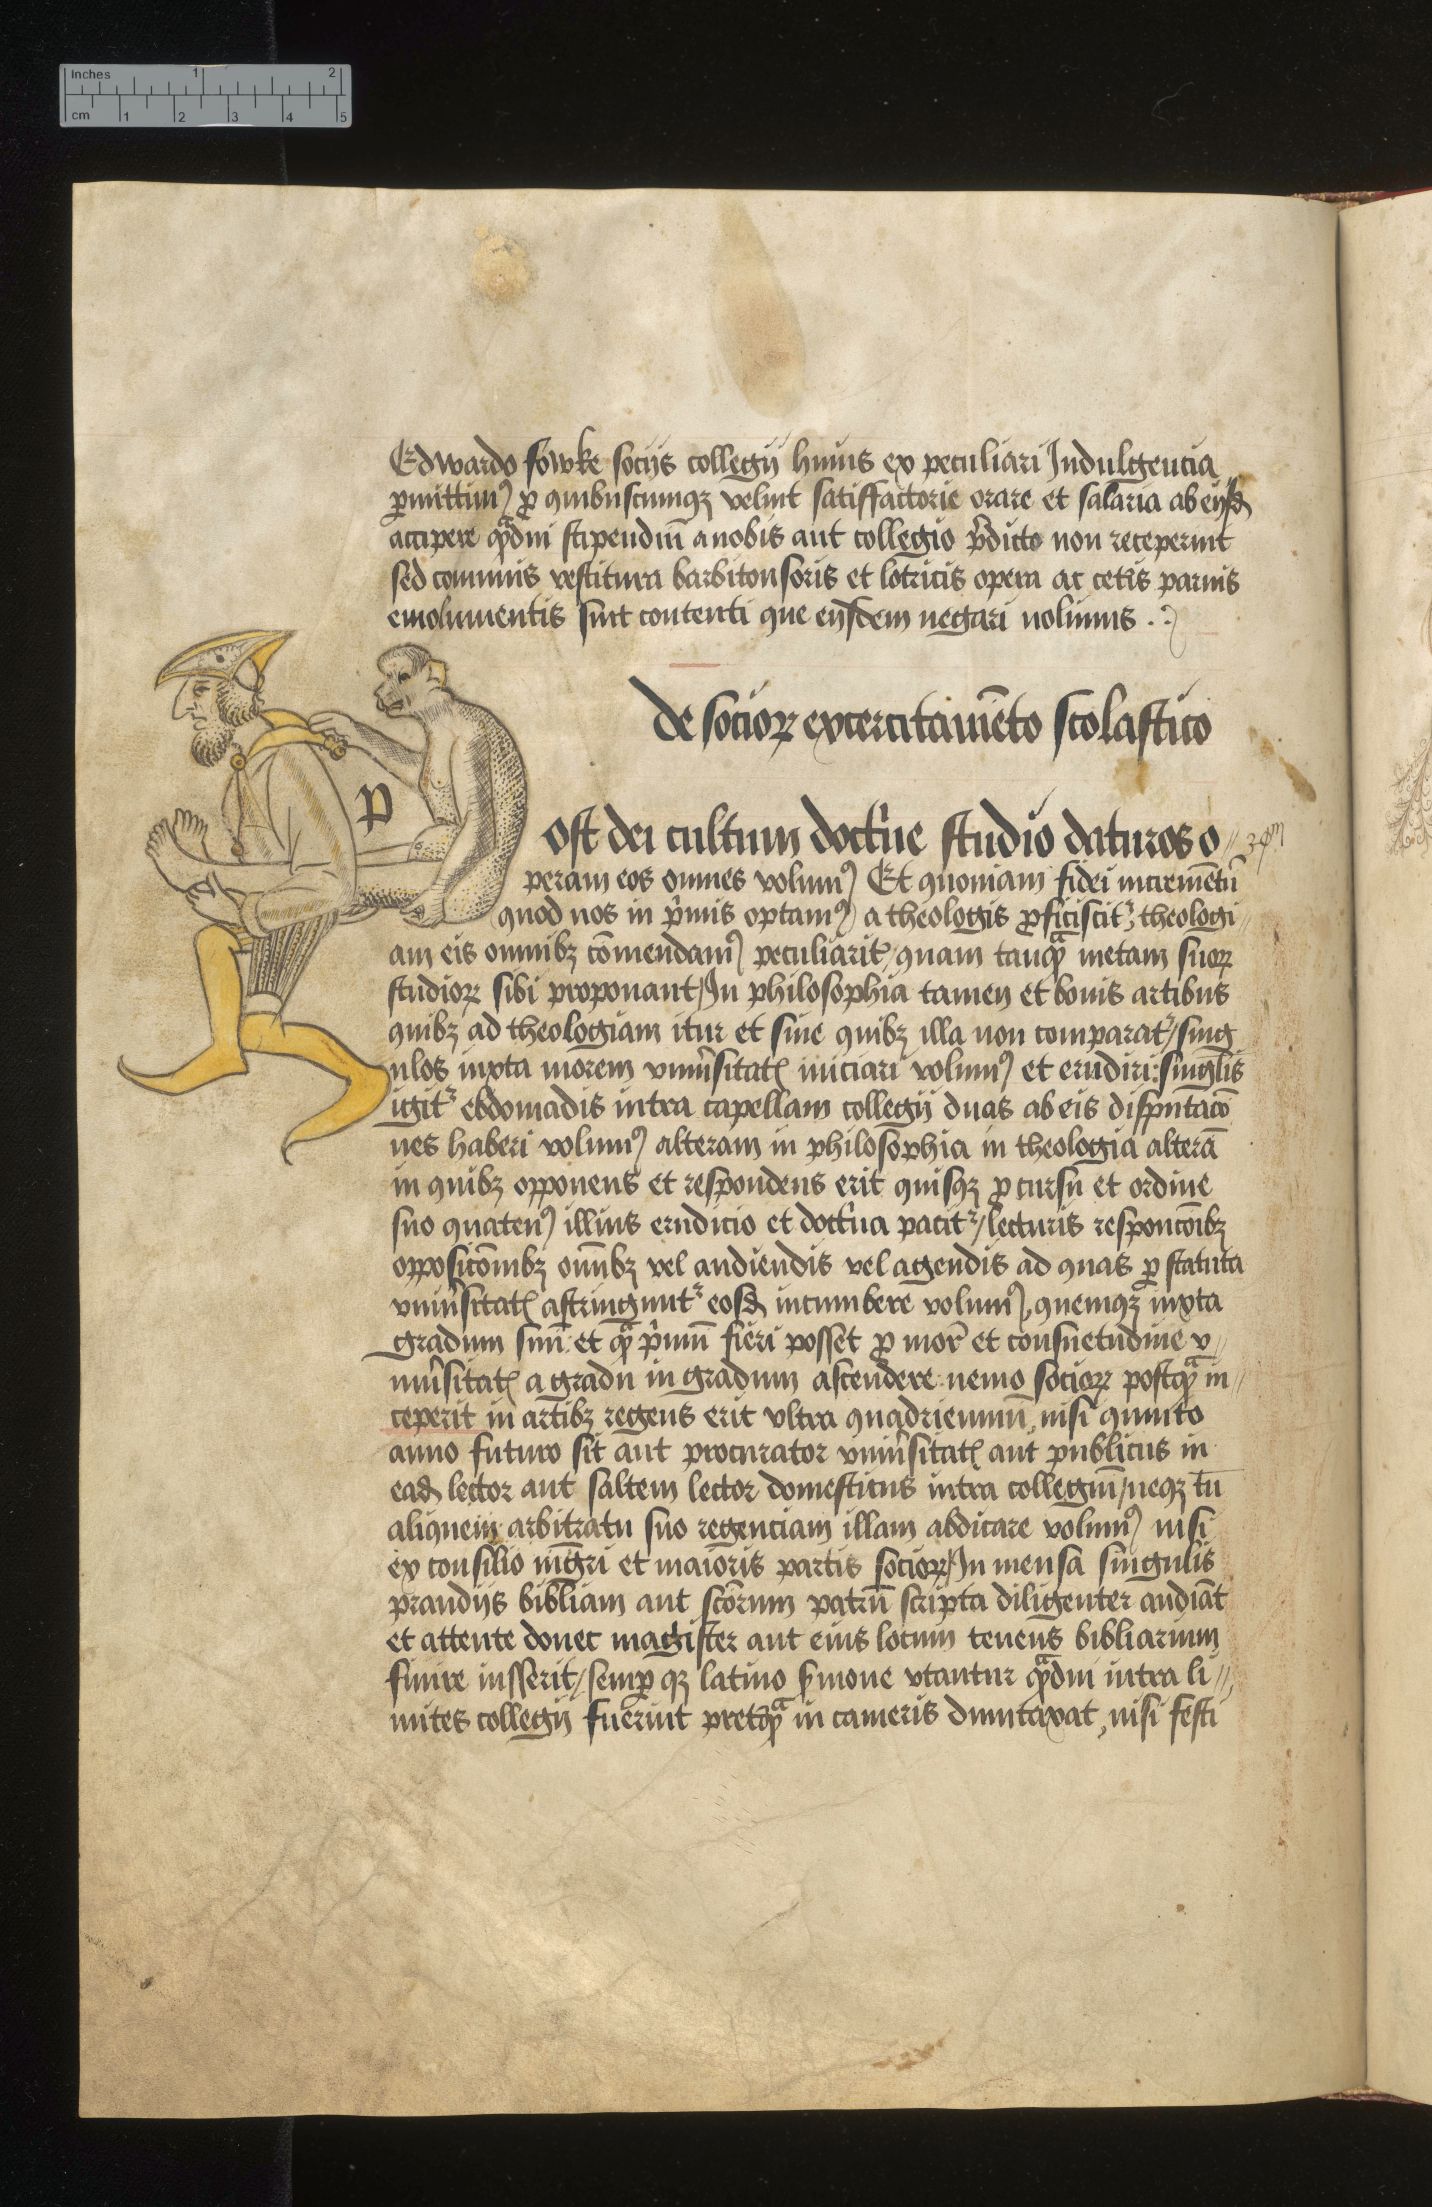 Inches 1 2
cm 1 2 3 4 5
Edwardo fowke socijs collegij huius ex peculiari Indulgencia
ꝑmittimꝰ ꝓ quibuscumqꝫ velint satisffactorie orare et salaria ab eijsd̄
accipere qᵃ̄diu stipendiū a nobis aut collegio p̄dicto non receperint
sed cōmunis vestitura barbitonsoris et lotricis opera ac cet̄is paruis
emolumentis sint contenti que eijsdem negari nolumus
de socioꝝ excercitamēto scolastico
P
ost dei cultum doct̾ne studio daturos o
peram eos omnes volumꝰ Et quoniam fidei incremētū
quod nos in p̾mis optamꝰ a theologis ꝓficiscit̾ theologi
am eis omnibꝫ cōmendamꝰ peculiarit̾ quam tanqᵃ̄ metam suoꝝ
studioꝝ sibi proponant In philosophia tamen et bonis artibus
quibꝫ ad theologiam itur et sine quibꝫ illa non comparat̾ sing
ulos iuxta morem vniu̾sitatꝭ iniciari volumꝰ et erudiri: singlīs
igit̾ ebdomadis intra capellam collegij duas ab eis disputacō
nes haberi volumꝰ alteram in philosophia in theologia alterā
in quibꝫ opponens et respondens erit quisqꝫ ꝓ cursu et ordine
suo quatenꝰ illius erudicio et doct̾na pacit̾ lecturis responcōibꝫ
opposicōnibꝫ omībꝫ vel audiendis vel agendis ad quas ꝑ statuta
vniu̾sitatꝭ astringunt̾ eosd̄ incumbere volumꝰ quemqꝫ iuxta
gradum suū et qᵃ̄ p̾mū fieri posset ꝓ mor̄ et consuetudine v
niu̾sitatꝭ a gradu in gradum ascendere nemo socioꝝ postqᵃ̄ in
ceperit in artibꝫ regens erit vltra quadrienniū nisi quinto
anno futuro sit aut procurator vniu̾sitatꝭ aut publicus in
ead̄ lector aut saltem lector domesticus intra collegiū neqꝫ tn̄
aliquem arbitratu suo regenciam illam abdicare volumꝰ nisi
ex consilio mḡri et maioris partis socioꝝ In mensa singulis
prandijs bibliam aut scōrum patrū scripta diligenter audiāt
et attente donec magister aut eius locum tenens bibliarium
finire iusserit sempꝑ qꝫ latino s̾mone vtantur qᵃ̄diu intra li
mites collegij fuerint pretqᵃ̄ in cameris dumtaxat nisi festi